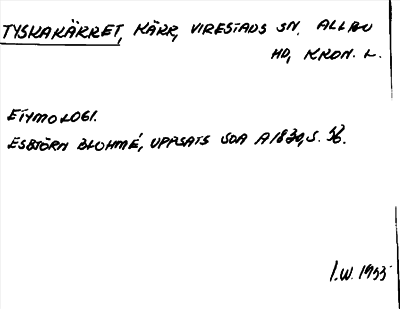 TYSKAKÄRRET, KÄRR, VIRESTADS SN, ALLBO
HD, KRON. L.
ETYMOLOGI.
ESBJÖRN BLOHMÉ, UPPSATS SOA A1830, S. 56.
I.W. 1955